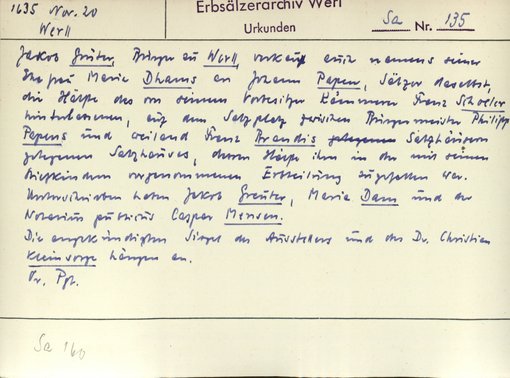 1635 Nov. 20
Werll
Erbsälzerarchiv Werl
Urkunden
Sa Nr. 135
Jakob Greuter, Bürger zu Werll, verkauft auch namens seiner
Ehefrau Maria Dhams an Johann Papen, Sälzer daselbst,
die Hälfte des von seinem Vorbesitzer Kämmerer Franz Schoeler
hinterlassenen, auf dem Salzplatz zwischen Bürgermeister Philipp
Papens und weiland Franz Brandis gelegenen Salzhäusern
gelegenen Salzhauses, deren Hälfte ihm in der mit seinen
Stiefkindern vorgenommenen Erbteilung zugefallen war.
Unterschrieben haben Jakob Greuter, Maria Dam und der
Notarius publicus Caspar Mensen.
Die angekündigten Siegel des Ausstellers und des Dr. Christian
Kleinsorge hängen an.
Or. Pgt.
Sa 160